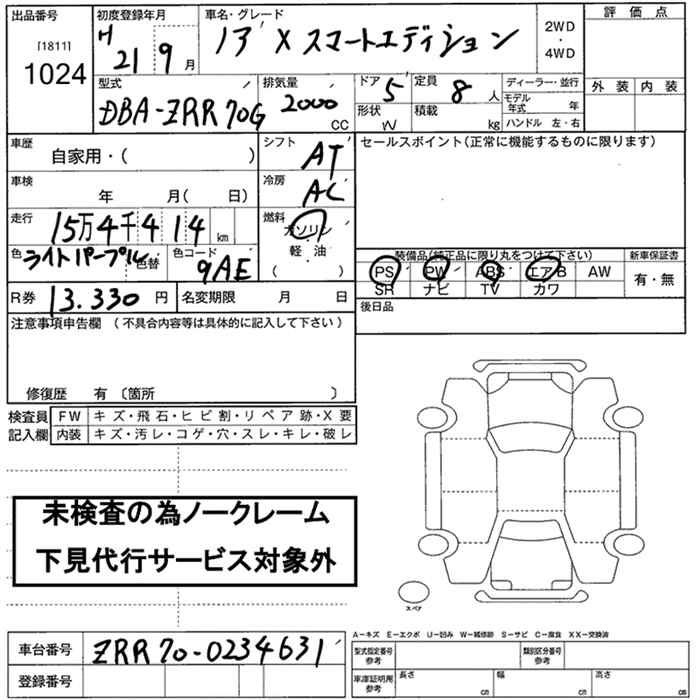 出品番号 初度登録年月 車名・グレード 評価点
[1811] H ノア X スマートエディション 2WD
1024 21 9月 ・ 4WD
型式 排気量 ドア 定員 ディーラー・並行 外装 内装
DBA-ZRR70G 2000 CC 5 8人 モデル年式 年
形状 W 積載 kg ハンドル 左・右
車歴 シフト セールスポイント(正常に機能するものに限ります)
自家用・( ) AT
車検 冷房
年 月( 日) AC
走行 燃料
15万4千414 km ガソリン
色 ライトパープル 色替 色コード 9AE 軽・油 ( )
装備品(純正品に限り丸をつけて下さい) 新車保証書
PS PW ABS エアB AW 有・無
SR ナビ TV カワ
R券 13.330 円 名変期限 月 日 後日品
注意事項申告欄 (不具合内容等は具体的に記入して下さい)
修復歴 有 〔箇所 〕
検査員 FW キズ・飛石・ヒビ割・リペア跡・X要
記入欄 内装 キズ・汚レ・コゲ・穴・スレ・キレ・破レ
未検査の為ノークレーム
下見代行サービス対象外
スペア
A-キズ E-エクボ U-凹み W-補修跡 S-サビ C-腐食 XX-交換済
車台番号 ZRR70-0234631 型式指定番号 参考 類別区分番号 参考
登録番号 車庫証明用 参考 長さ cm 幅 cm 高さ cm